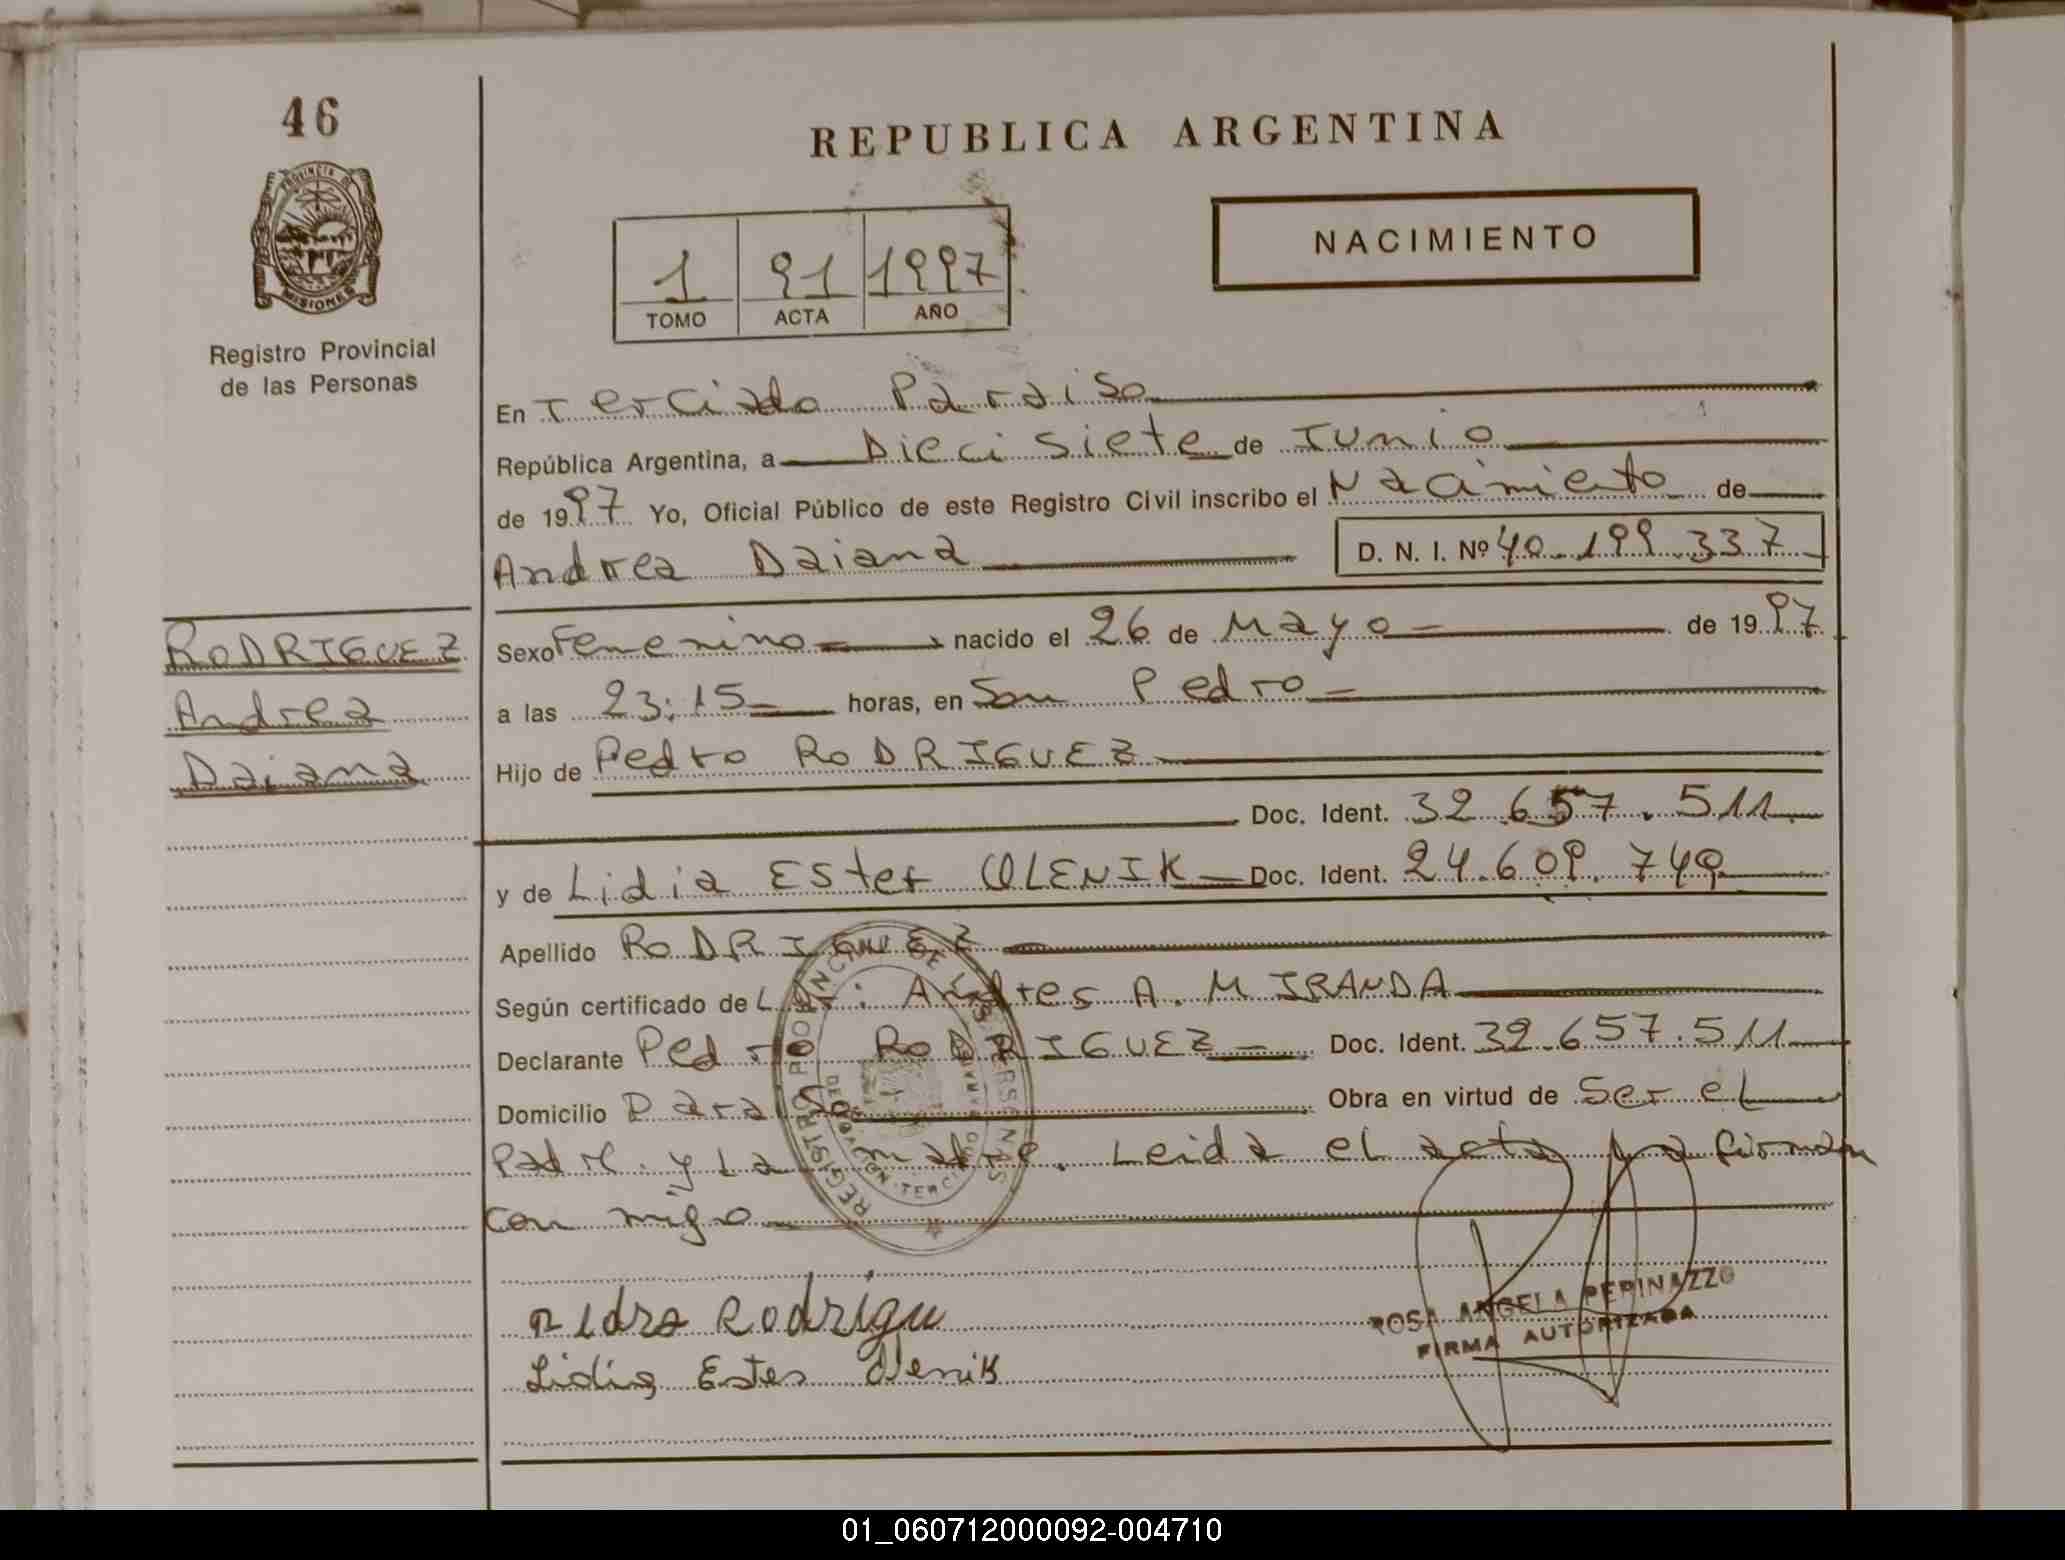 46
REPUBLICA ARGENTINA
PROVINCIA DE
MISIONES
NACIMIENTO
1 91 1997
TOMO ACTA AÑO
Registro Provincial
de las Personas
En Terciado Paraiso
República Argentina, a Dieci siete de Junio
de 1997 Yo, Oficial Público de este Registro Civil inscribo el Nacimiento de
Andrea Daiana D. N. I. Nº 40.199.337
RODRIGUEZ
Andrea
Daiana
Sexo Femenino nacido el 26 de Mayo de 1997
a las 23:15 horas, en San Pedro
Hijo de Pedro RODRIGUEZ
Doc. Ident. 32.657.511
y de Lidia Ester OLENIK Doc. Ident. 24.609.749
Apellido RODRIGUEZ
Según certificado de L Dr: Andres A. MIRANDA
Declarante Pedro RODRIGUEZ Doc. Ident. 32.657.511
Domicilio Paraiso Obra en virtud de Ser el
Padre y La madre. Leida el acta La firman
con migo
REGISTRO PROVINCIAL DE LAS PERSONAS
Pedro Rodrigu
Lidia Ester Olenik
ROSA ANGELA PEPINAZZO
FIRMA AUTORIZADA
01_060712000092-004710